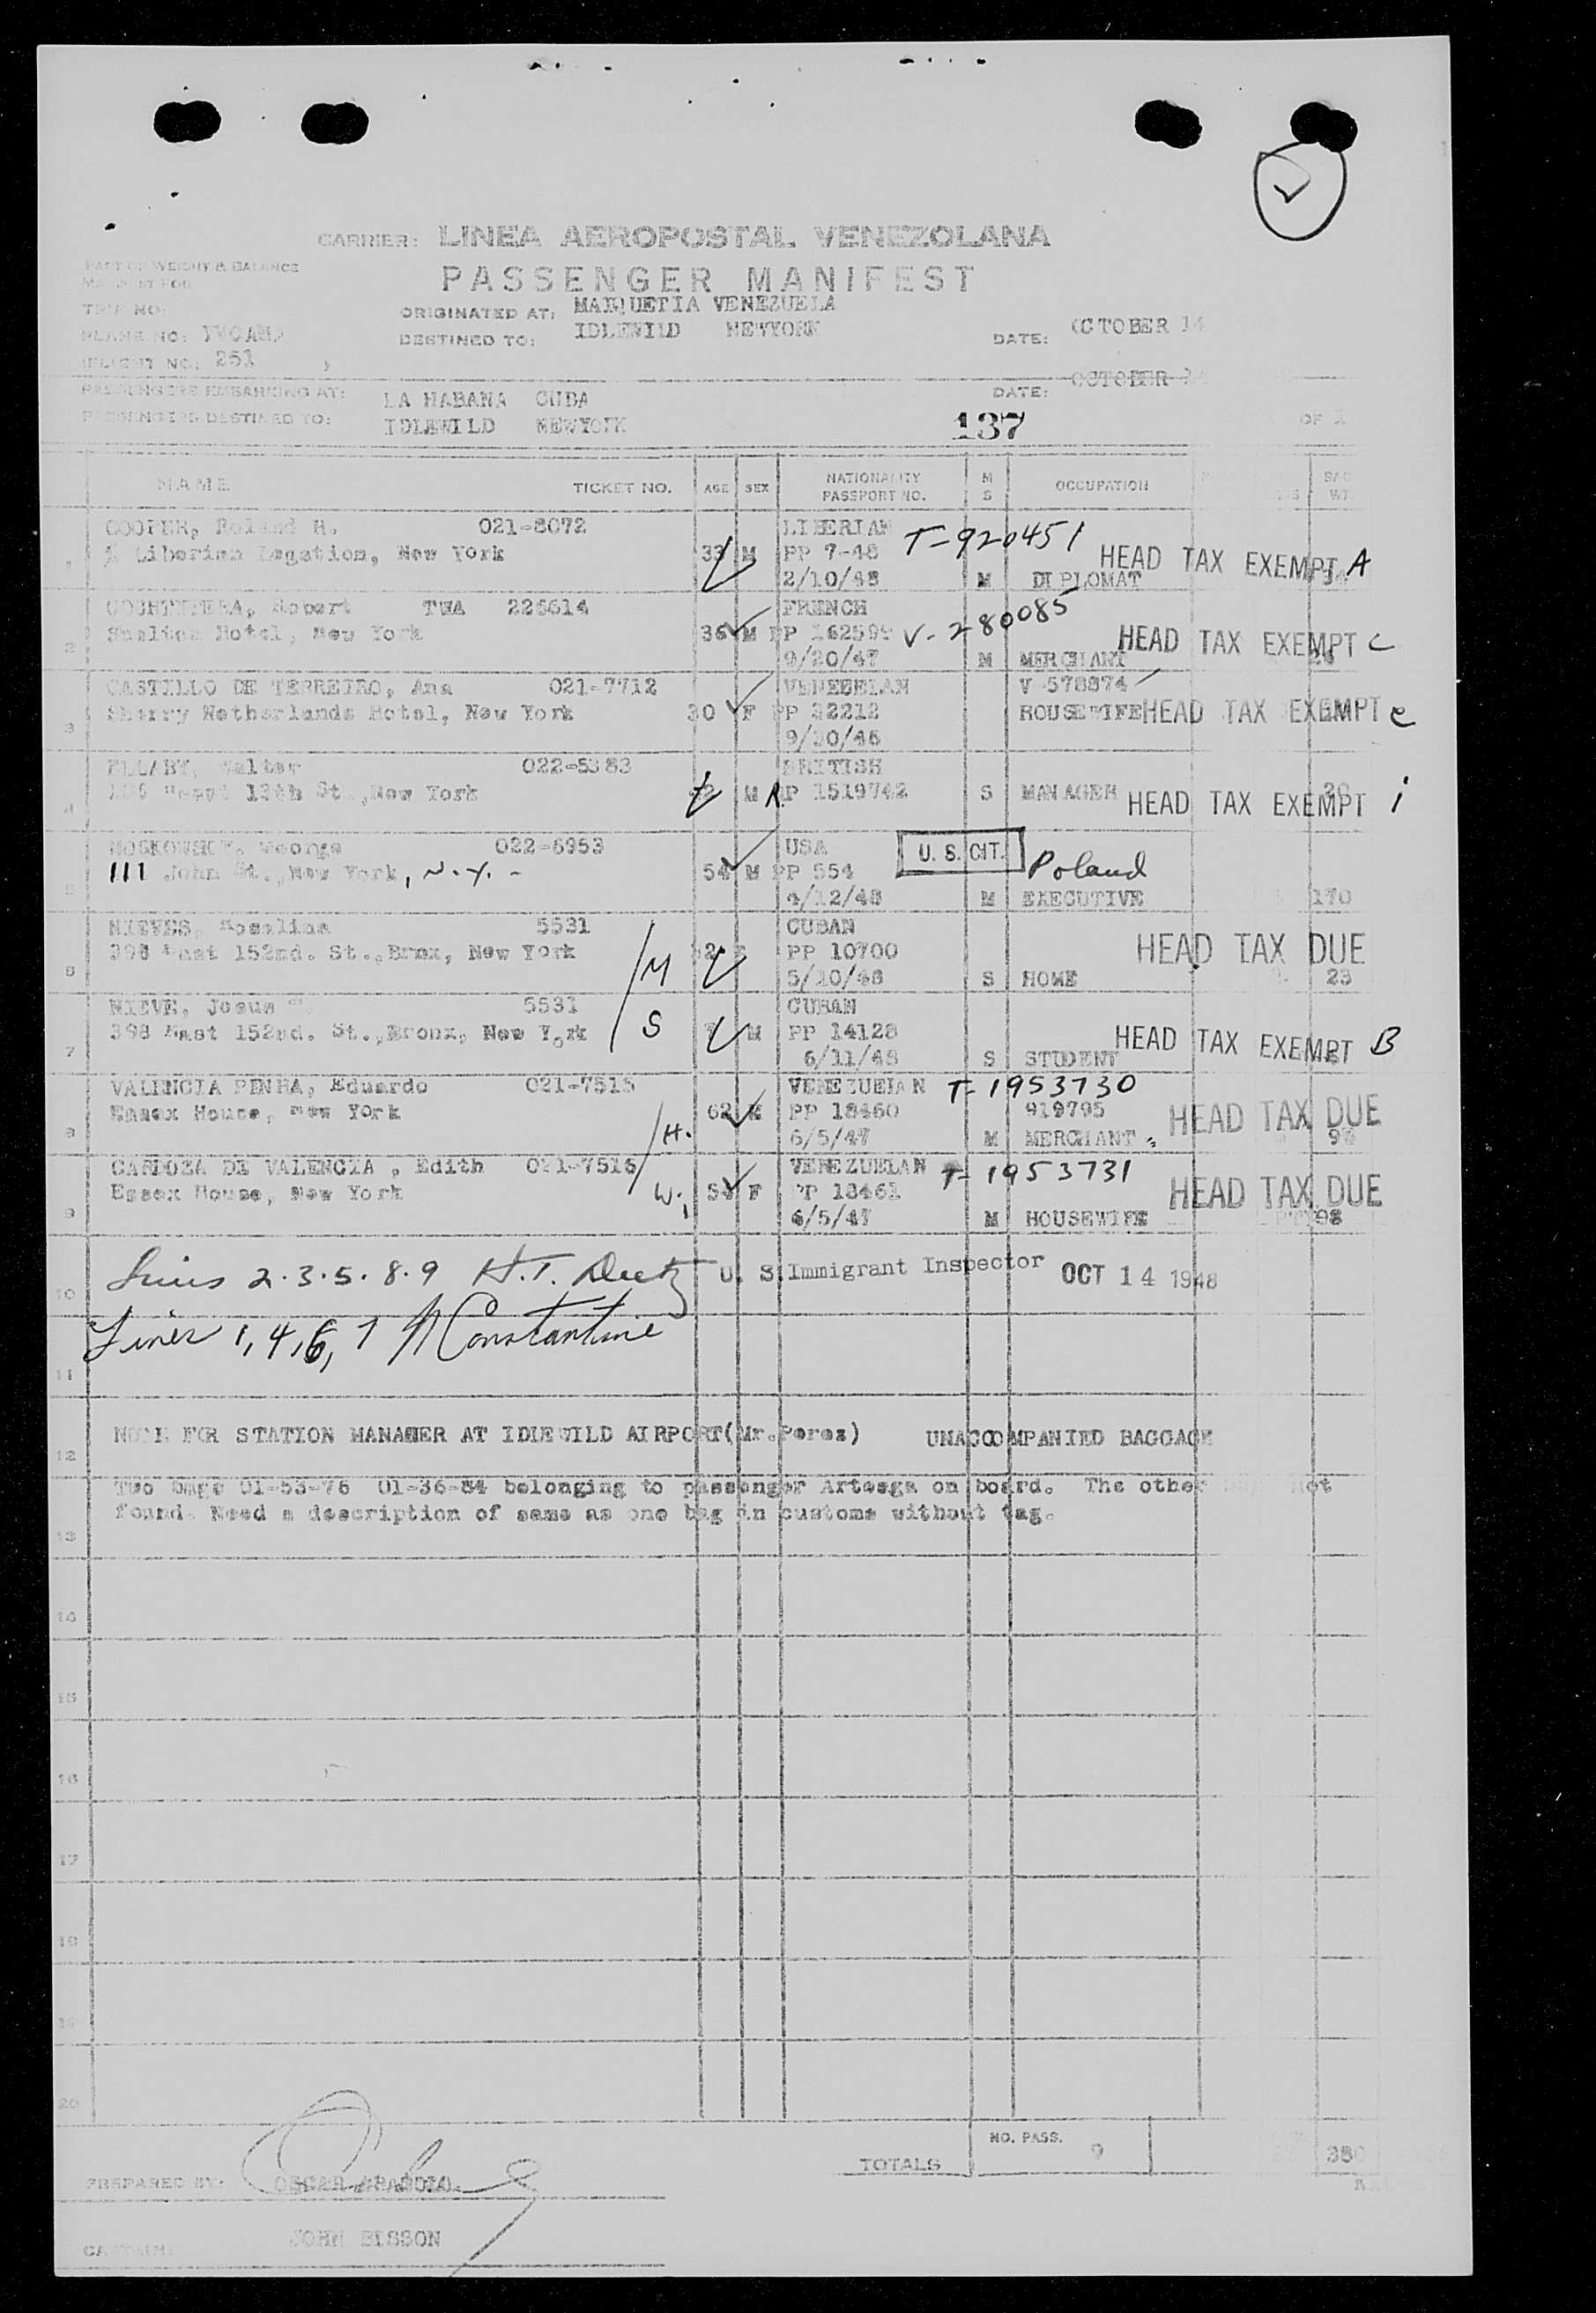 CARRIER: LINEA AEROPOSTAL VENEZOLANA
PART OF WEIGHT & BALANCE
MANIFEST FOR
PASSENGER MANIFEST
TRIP NO:
ORIGINATED AT: MAIQUETIA VENEZUELA
PLANE NO: YVCAM
DESTINED TO: IDLEWILD NEWYORK
DATE: OCTOBER 14
FLIGHT NO: 251
PASSENGERS EMBARKING AT: LA HABANA CUBA
DATE: OCTOBER
PASSENGERS DESTINED TO: IDLEWILD NEWYORK
137
OF 1
NAME TICKET NO. AGE SEX NATIONALITY PASSPORT NO. M S OCCUPATION
COOPER, Roland H. 021-8072 LIBERIAN T-920451
1 % Liberian Legation, New York 33 M PP 7-48 HEAD TAX EXEMPT A
2/10/48 M DIPLOMAT
Robert TWA 226614 FRENCH V-280085
2 Shelton Hotel, New York 36 M PP HEAD TAX EXEMPT C
9/20/47 M MERCHANT
CASTILLO DE TERREIRO, Ana 021-7712 V 578874
3 Sherry Netherlands Hotel, New York 30 F PP 22212 HOUSEWIFE HEAD TAX EXEMPT e
Walter 022-5383 BRITISH
4 13th St., New York M PP 1519742 S MANAGER HEAD TAX EXEMPT i
George 022-6953 USA U. S. CIT. Poland
5 111 John St., New York, N.Y. - 54 M PP 554
4/12/48 M EXECUTIVE 170
NIEVES, Rosalina 5531 CUBAN HEAD TAX DUE
6 398 East 152nd. St., Bronx, New York M PP 10700
5/10/48 S HOME 23
NIEVE, Josue 5531 CUBAN
7 398 East 152nd. St., Bronx, New York S M PP 14128 HEAD TAX EXEMPT B
6/11/48 S STUDENT
VALENCIA PENHA, Eduardo 021-7515 VENEZUELAN T-1953730
8 Essex House, New York H. 62 M PP 18460 919795 HEAD TAX DUE
6/5/47 M MERCHANT
CARDOZA DE VALENCIA, Edith 021-7516 VENEZUELAN T-1953731
9 Essex House, New York W. F PP 18461 HEAD TAX DUE
6/5/47 M HOUSEWIFE 98
10 Lines 2.3.5.8.9 H.T. U. S. Immigrant Inspector OCT 14 1948
11 Lines 1,4,6,7 Constantine
12 NOTE FOR STATION MANAGER AT IDLEWILD AIRPORT(Mr.Perez) UNACCOMPANIED BAGGAGE
Two bags 01-53-76 01-36-84 belonging to passenger Arteaga on board. The other not
13 found. Need a description of same as one bag in customs without tag.
14
15
16
17
18
19
20
TOTALS NO. PASS. 9
PREPARED BY: OSCAR
CAPTAIN: JOHN BISSON